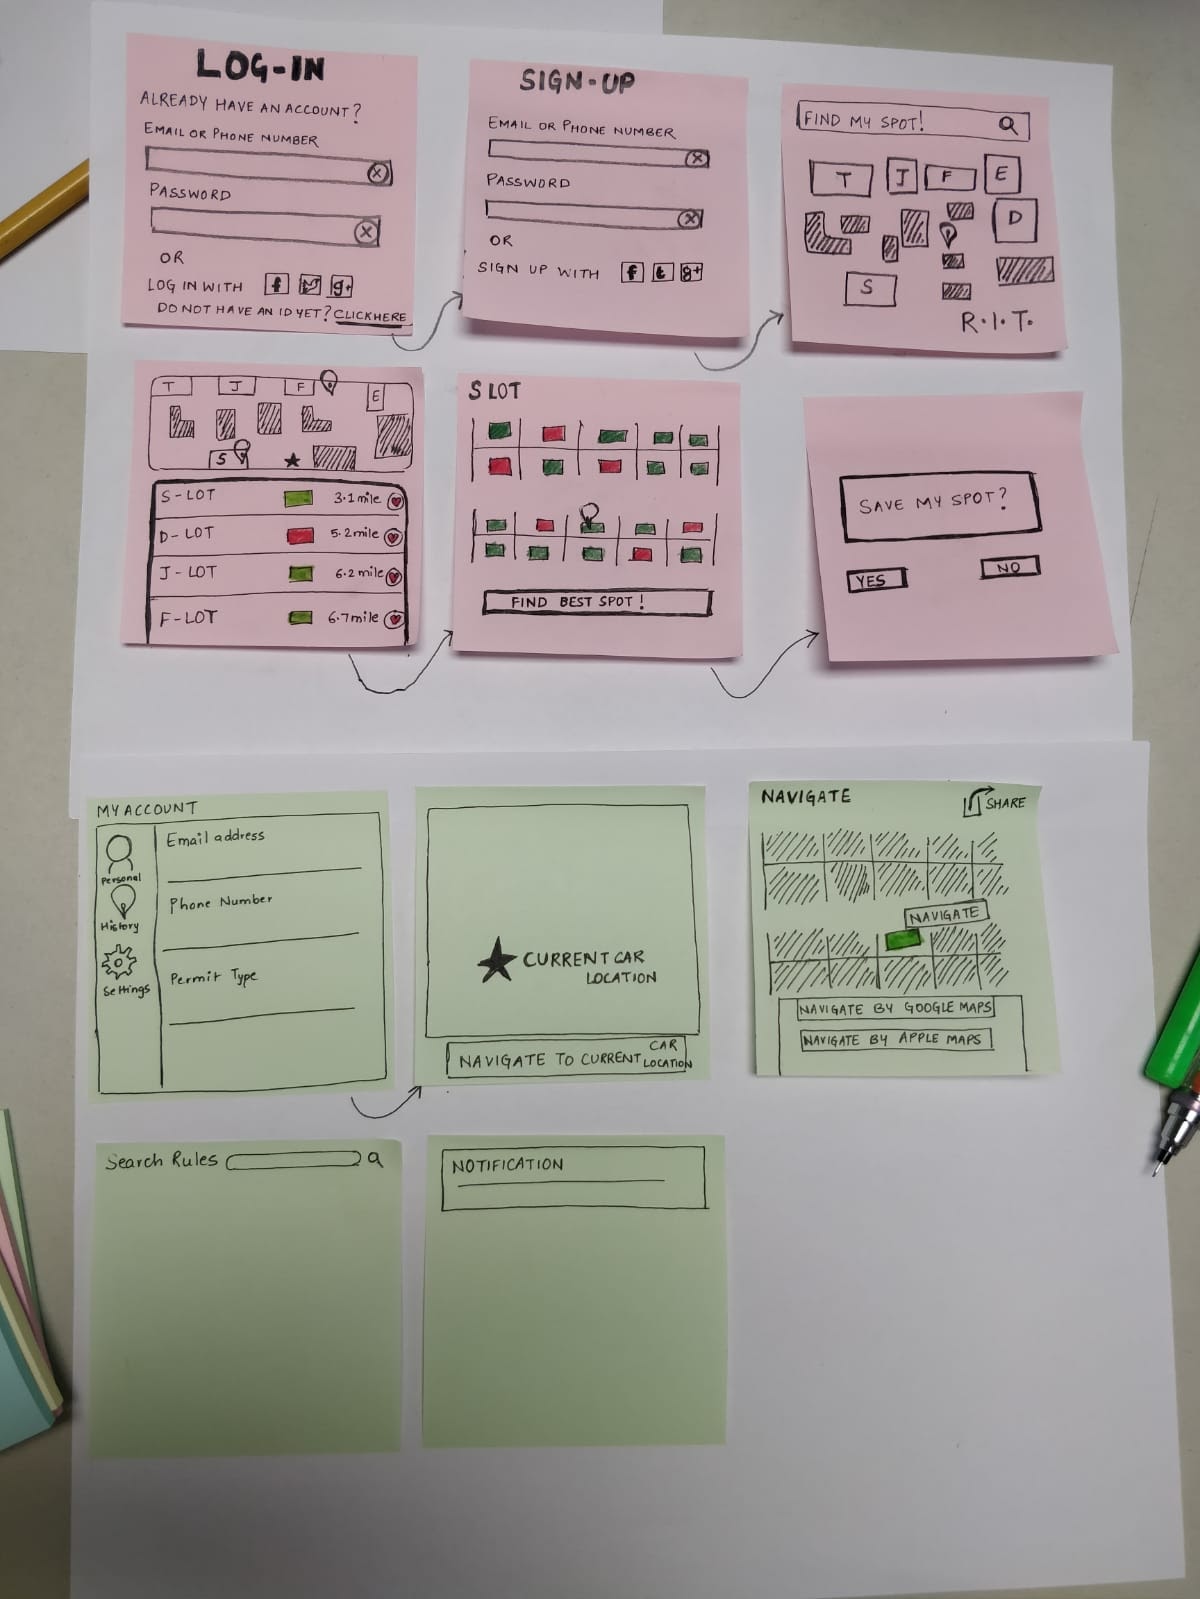 LOG-IN
ALREADY HAVE AN ACCOUNT?
EMAIL OR PHONE NUMBER
PASSWORD
OR
LOG IN WITH f g+
DO NOT HAVE AN ID YET? CLICK HERE
SIGN-UP
EMAIL OR PHONE NUMBER
PASSWORD
OR
SIGN UP WITH f t g+
FIND MY SPOT!
T J F E
D
S
R.I.T.
T J F E
S
S-LOT 3.1mile
D-LOT 5.2mile
J-LOT 6.2mile
F-LOT 6.7mile
S LOT
FIND BEST SPOT!
SAVE MY SPOT?
YES NO
MY ACCOUNT
Personal
History
Settings
Email address
Phone Number
Permit Type
CURRENT CAR
LOCATION
NAVIGATE TO CURRENT CAR
LOCATION
NAVIGATE SHARE
NAVIGATE
NAVIGATE BY GOOGLE MAPS
NAVIGATE BY APPLE MAPS
Search Rules
NOTIFICATION